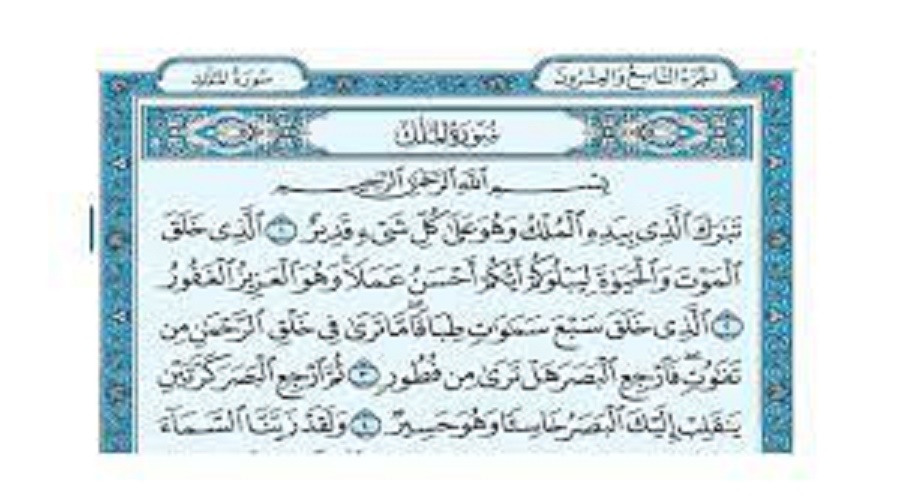 الجزء التاسع والعشرون
سورة الملك
سُورَةُ المُلْكِ
بِسْمِ ٱللَّهِ ٱلرَّحْمَٰنِ ٱلرَّحِيمِ
تَبَٰرَكَ ٱلَّذِى بِيَدِهِ ٱلْمُلْكُ وَهُوَ عَلَىٰ كُلِّ شَىْءٍ قَدِيرٌ ١ ٱلَّذِى خَلَقَ
ٱلْمَوْتَ وَٱلْحَيَوٰةَ لِيَبْلُوَكُمْ أَيُّكُمْ أَحْسَنُ عَمَلًا وَهُوَ ٱلْعَزِيزُ ٱلْغَفُورُ
٢ ٱلَّذِى خَلَقَ سَبْعَ سَمَٰوَٰتٍ طِبَاقًا مَّا تَرَىٰ فِى خَلْقِ ٱلرَّحْمَٰنِ مِن
تَفَٰوُتٍ فَٱرْجِعِ ٱلْبَصَرَ هَلْ تَرَىٰ مِن فُطُورٍ ٣ ثُمَّ ٱرْجِعِ ٱلْبَصَرَ كَرَّتَيْنِ
يَنقَلِبْ إِلَيْكَ ٱلْبَصَرُ خَاسِئًا وَهُوَ حَسِيرٌ ٤ وَلَقَدْ زَيَّنَّا ٱلسَّمَآءَ